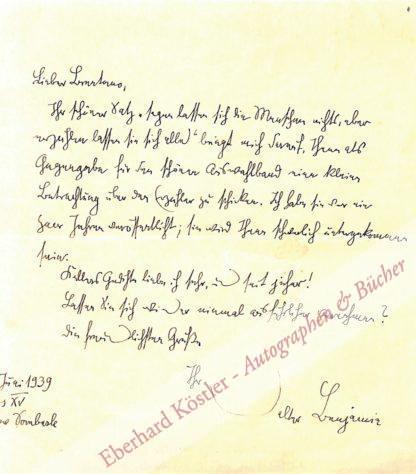 Lieber Brentano,
Ihr schöner Satz „sagen lassen sich die Menschen nichts, aber
erzählen lassen sie sich alles“ bringt mich darauf, Ihnen als
Gegengabe für den schönen Auswahlband eine kleine
Betrachtung über den Erzähler zu schicken. Ich habe sie vor ein
paar Jahren veröffentlicht; sie wird Ihnen schwerlich untergekommen
sein.
Kellers Gedichte liebe ich sehr, und seit jeher!
Lassen Sie sich wieder einmal ausführlicher vernehmen?
Die freundlichsten Grüße
Ihr
Walter Benjamin
Juni 1939
XV
Dombasle
Eberhard Köstler - Autographen & Bücher